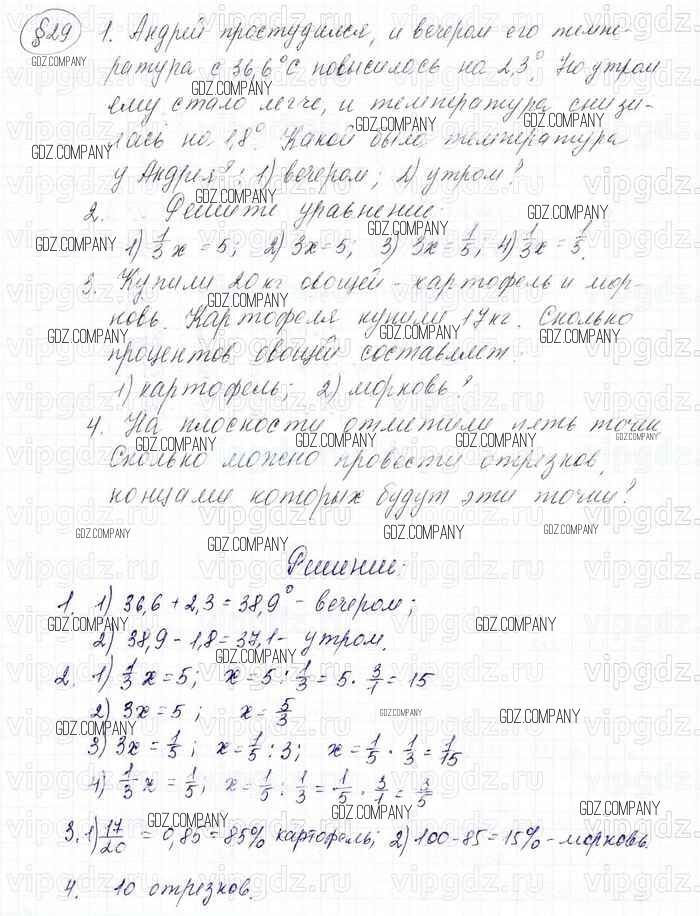 §29 1. Андрей простудился, и вечером его темпе-
ратура с 36,6°С повысилась на 2,3°. Но утром
ему стало легче, и температура снизи-
лась на 1,8°. Какой была температура
у Андрея: 1) вечером; 2) утром?
2. Решите уравнение:
1) 1/3 x = 5; 2) 3x = 5; 3) 3x = 1/5; 4) 1/3 x = 1/5.
3. Купили 20 кг овощей - картофель и мор-
ковь. Картофеля купили 17 кг. Сколько
процентов овощей составляет:
1) картофель; 2) морковь?
4. На плоскости отметили пять точек
Сколько можно провести отрезков,
концами которых будут эти точки?
Решение:
1. 1) 36,6 + 2,3 = 38,9° - вечером;
2) 38,9 - 1,8 = 37,1 - утром.
2. 1) 1/3 x = 5; x = 5 : 1/3 = 5 · 3/1 = 15
2) 3x = 5; x = 5/3
3) 3x = 1/5; x = 1/5 : 3; x = 1/5 · 1/3 = 1/15
4) 1/3 x = 1/5; x = 1/5 : 1/3 = 1/5 · 3/1 = 3/5
3. 1) 17/20 = 0,85 = 85% картофель; 2) 100 - 85 = 15% - морковь.
4. 10 отрезков.
GDZ.COMPANY
vipgdz.ru